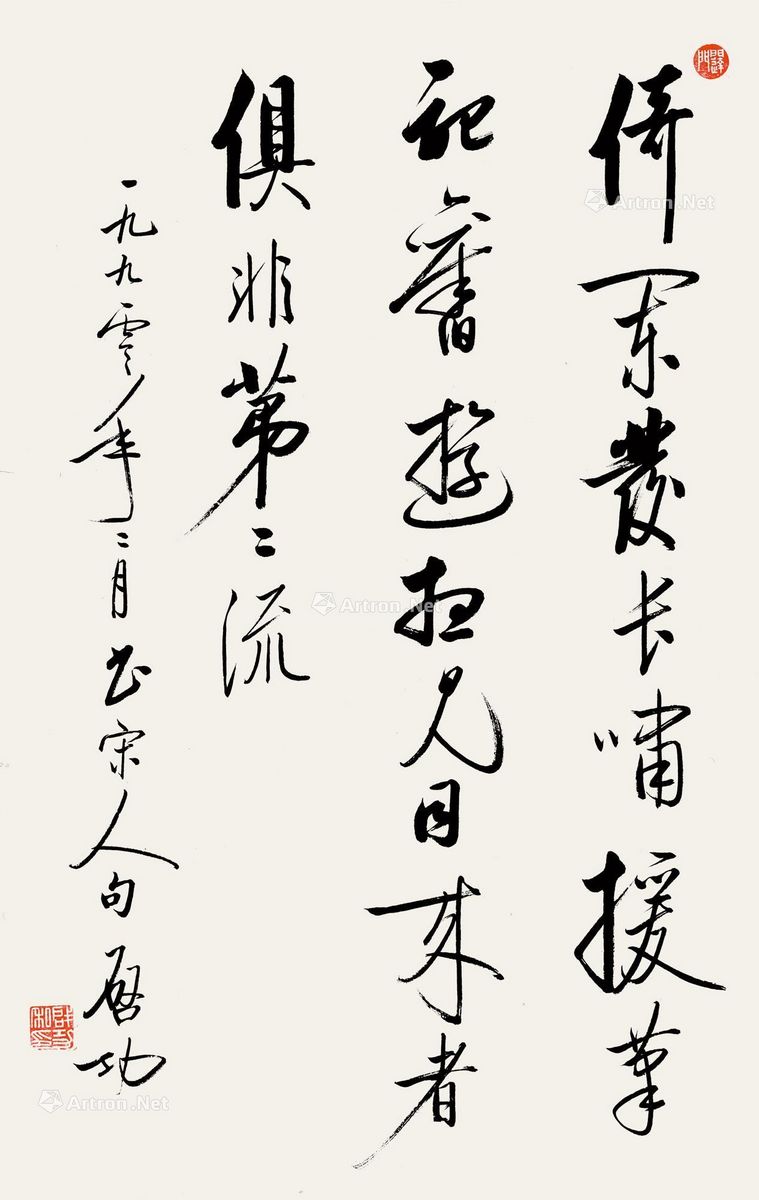 倚闌發长嘯援筆
記舊遊想见同来者
俱非第二流
一九九零年二月书宋人句 启功
Artron.Net
Artron.Net
Artron.Net